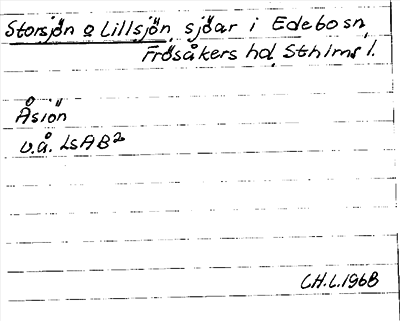 Storsjön o Lillsjön, sjöar i Edebo sn,
Frösåkers hd, Sthlms l.
Åsiön
u.å. LSA B²
CH.L.1968